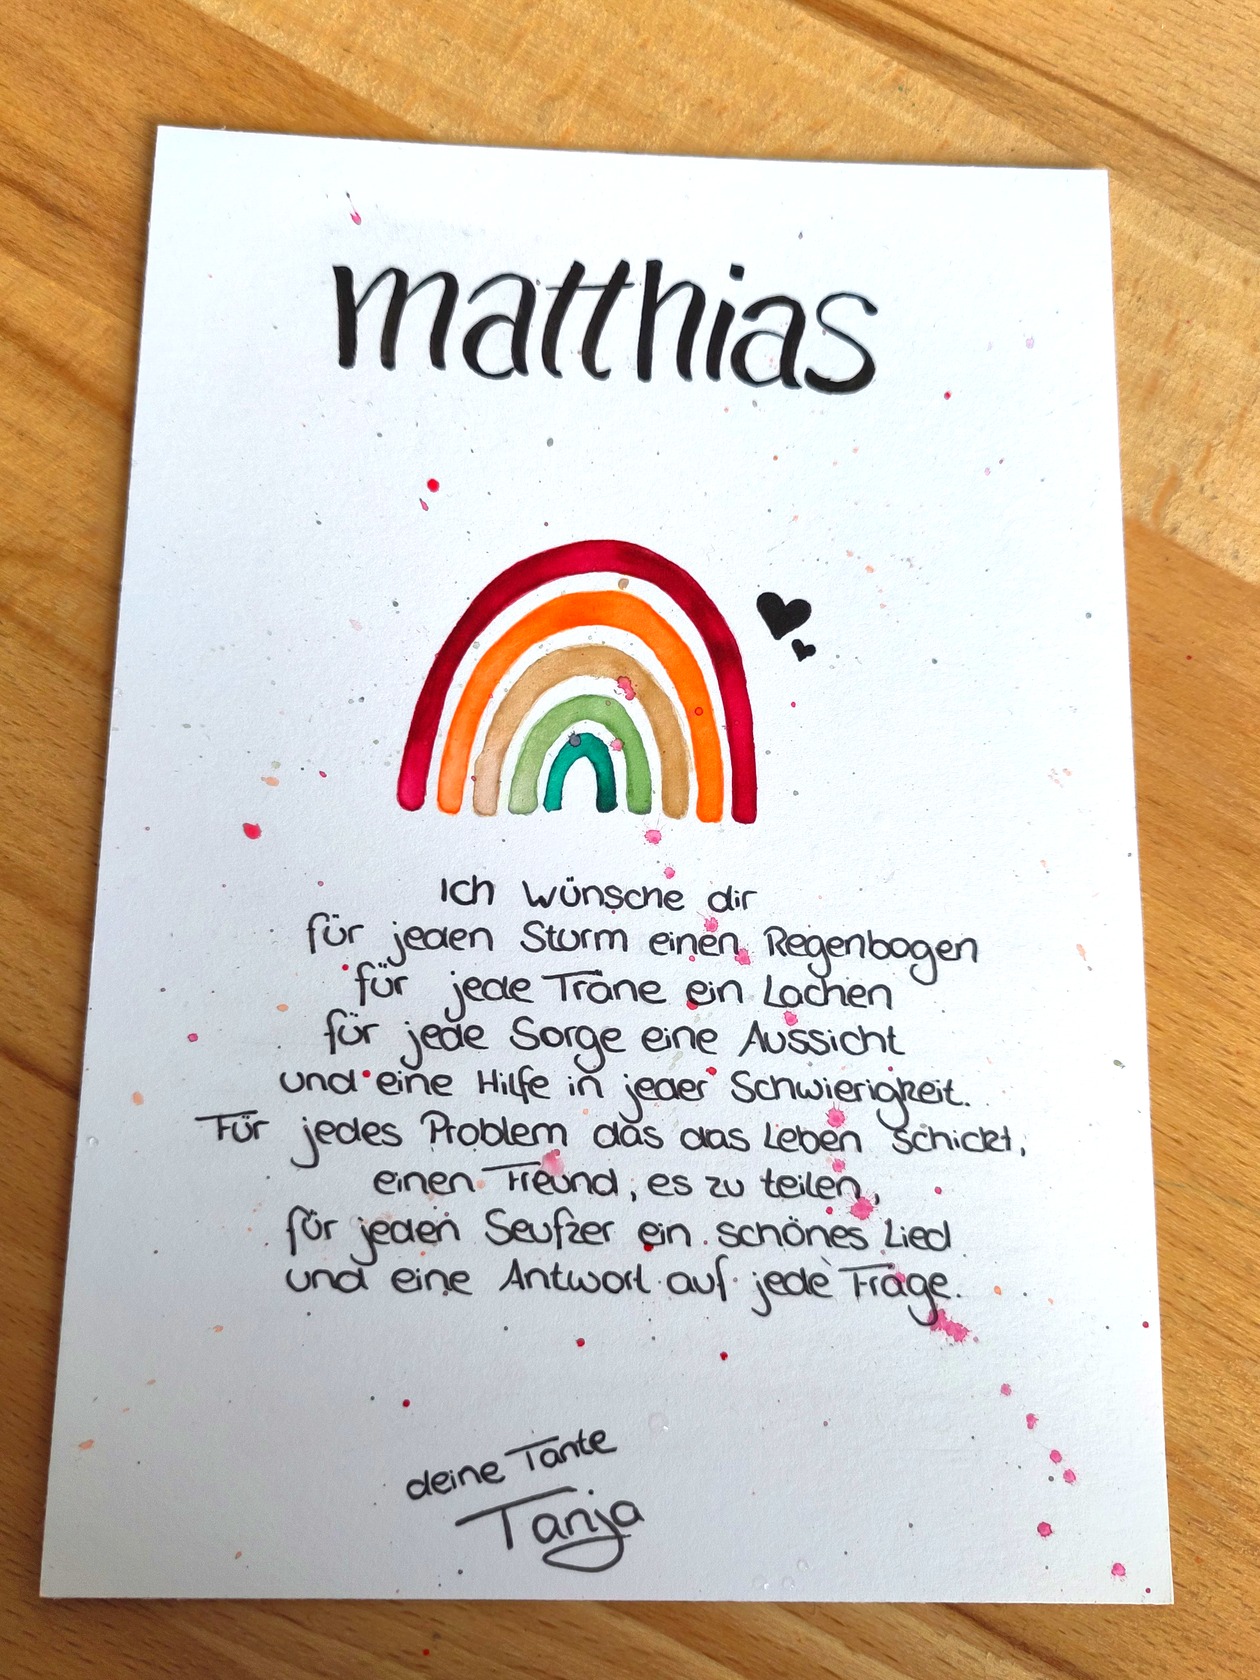 matthias
Ich wünsche dir
für jeden Sturm einen Regenbogen
für jede Träne ein Lachen
für jede Sorge eine Aussicht
und eine Hilfe in jeder Schwierigkeit.
Für jedes Problem das das Leben schickt,
einen Freund, es zu teilen,
für jeden Seufzer ein schönes Lied
und eine Antwort auf jede Frage.
deine Tante
Tanja